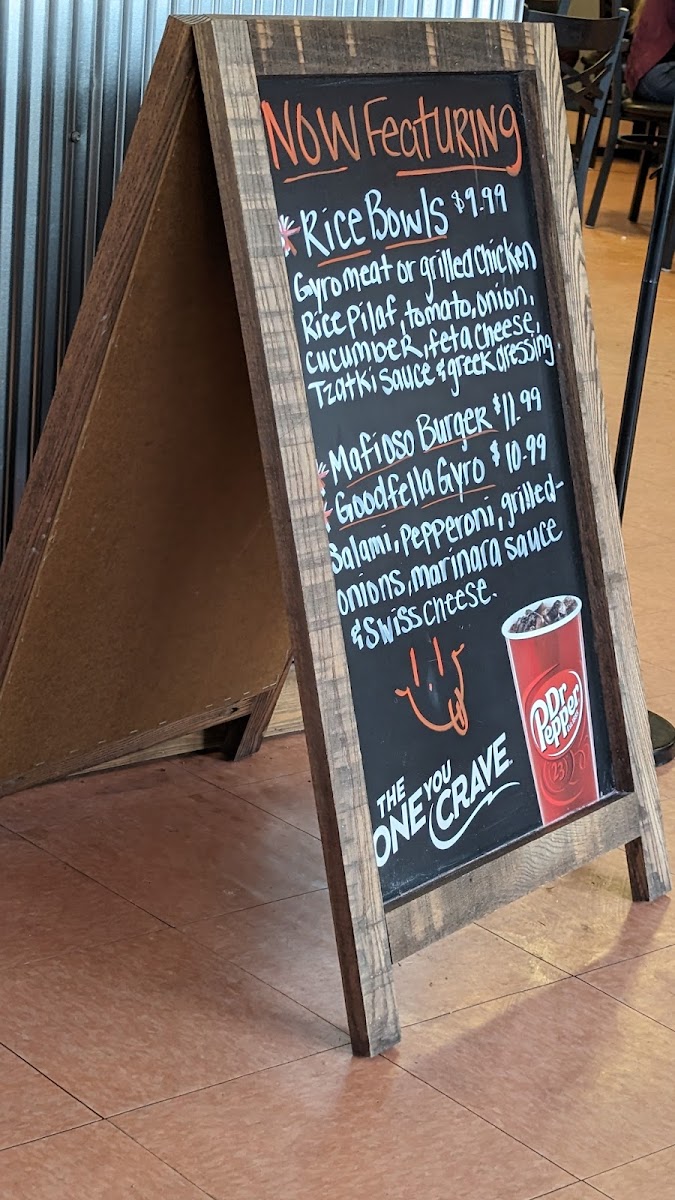 NOW FeaTURING
Rice Bowls $9.99
Gyro meat or grilled chicken
Rice Pilaf, tomato, onion,
cucumber, feta cheese,
Tzatki sauce & greek dressing.
Mafioso Burger $11.99
Goodfella Gyro $10.99
Salami, Pepperoni, grilled-
onions, marinara sauce
& Swiss cheese.
Dr
Pepper
23
THE
ONE YOU
CRAVE